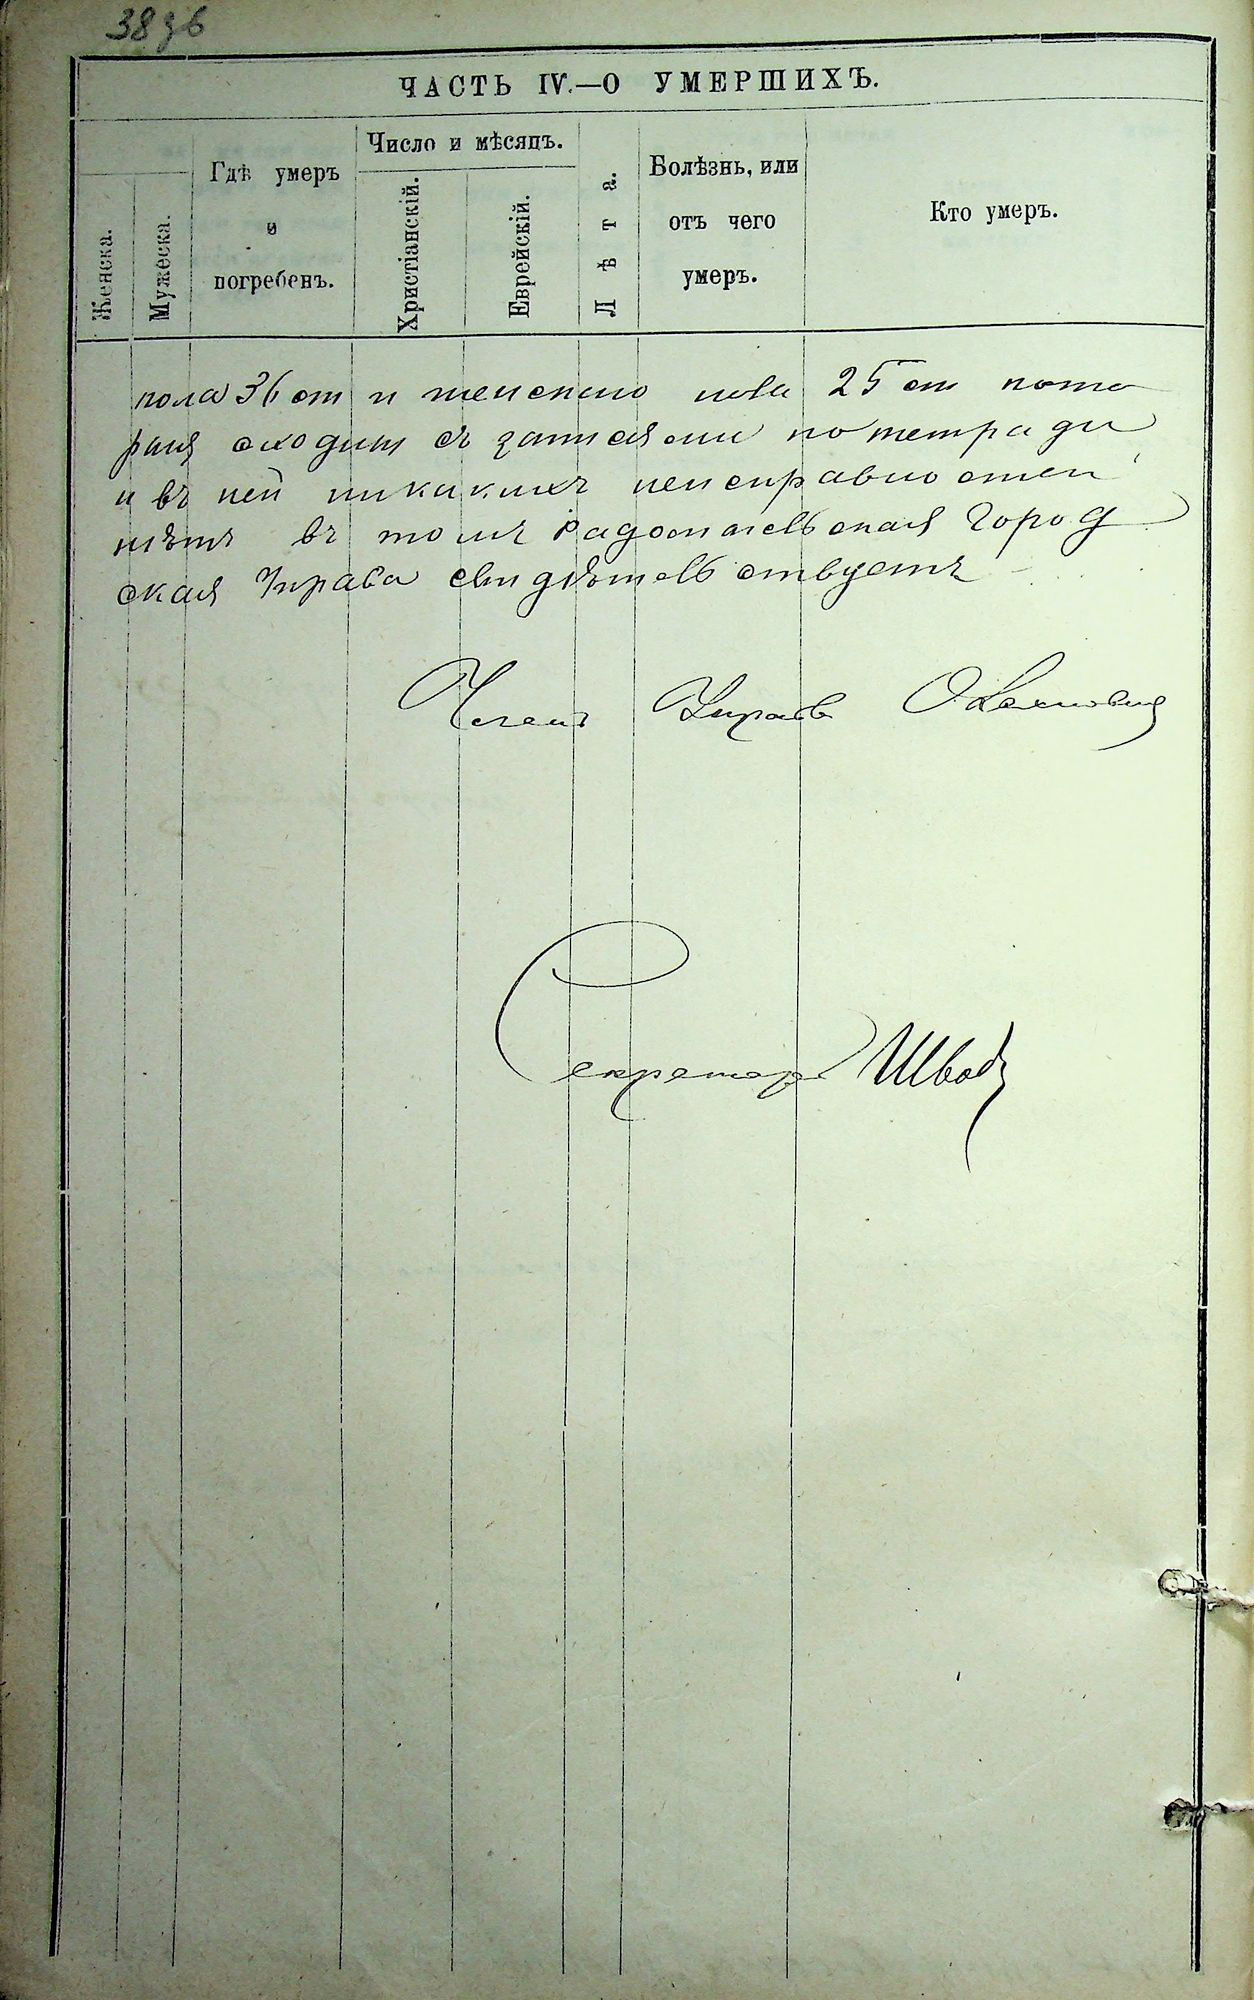 38 зб
ЧАСТЬ IV.—О УМЕРШИХЪ.
Женска.
Мужеска.
Гдѣ умеръ
и
погребенъ.
Число и мѣсяцъ.
Христіанскій.
Еврейскій.
Лѣта.
Болѣзнь, или
отъ чего
умеръ.
Кто умеръ.
пола 36 ст и женскаго пола 25 ст кото
рая сходит съ записями по тетради
и въ ней никакихъ неисправностей
нѣтъ въ томъ Радомысльская Город
ская Управа свидѣтельствуетъ
Членъ Управы
Секретарь